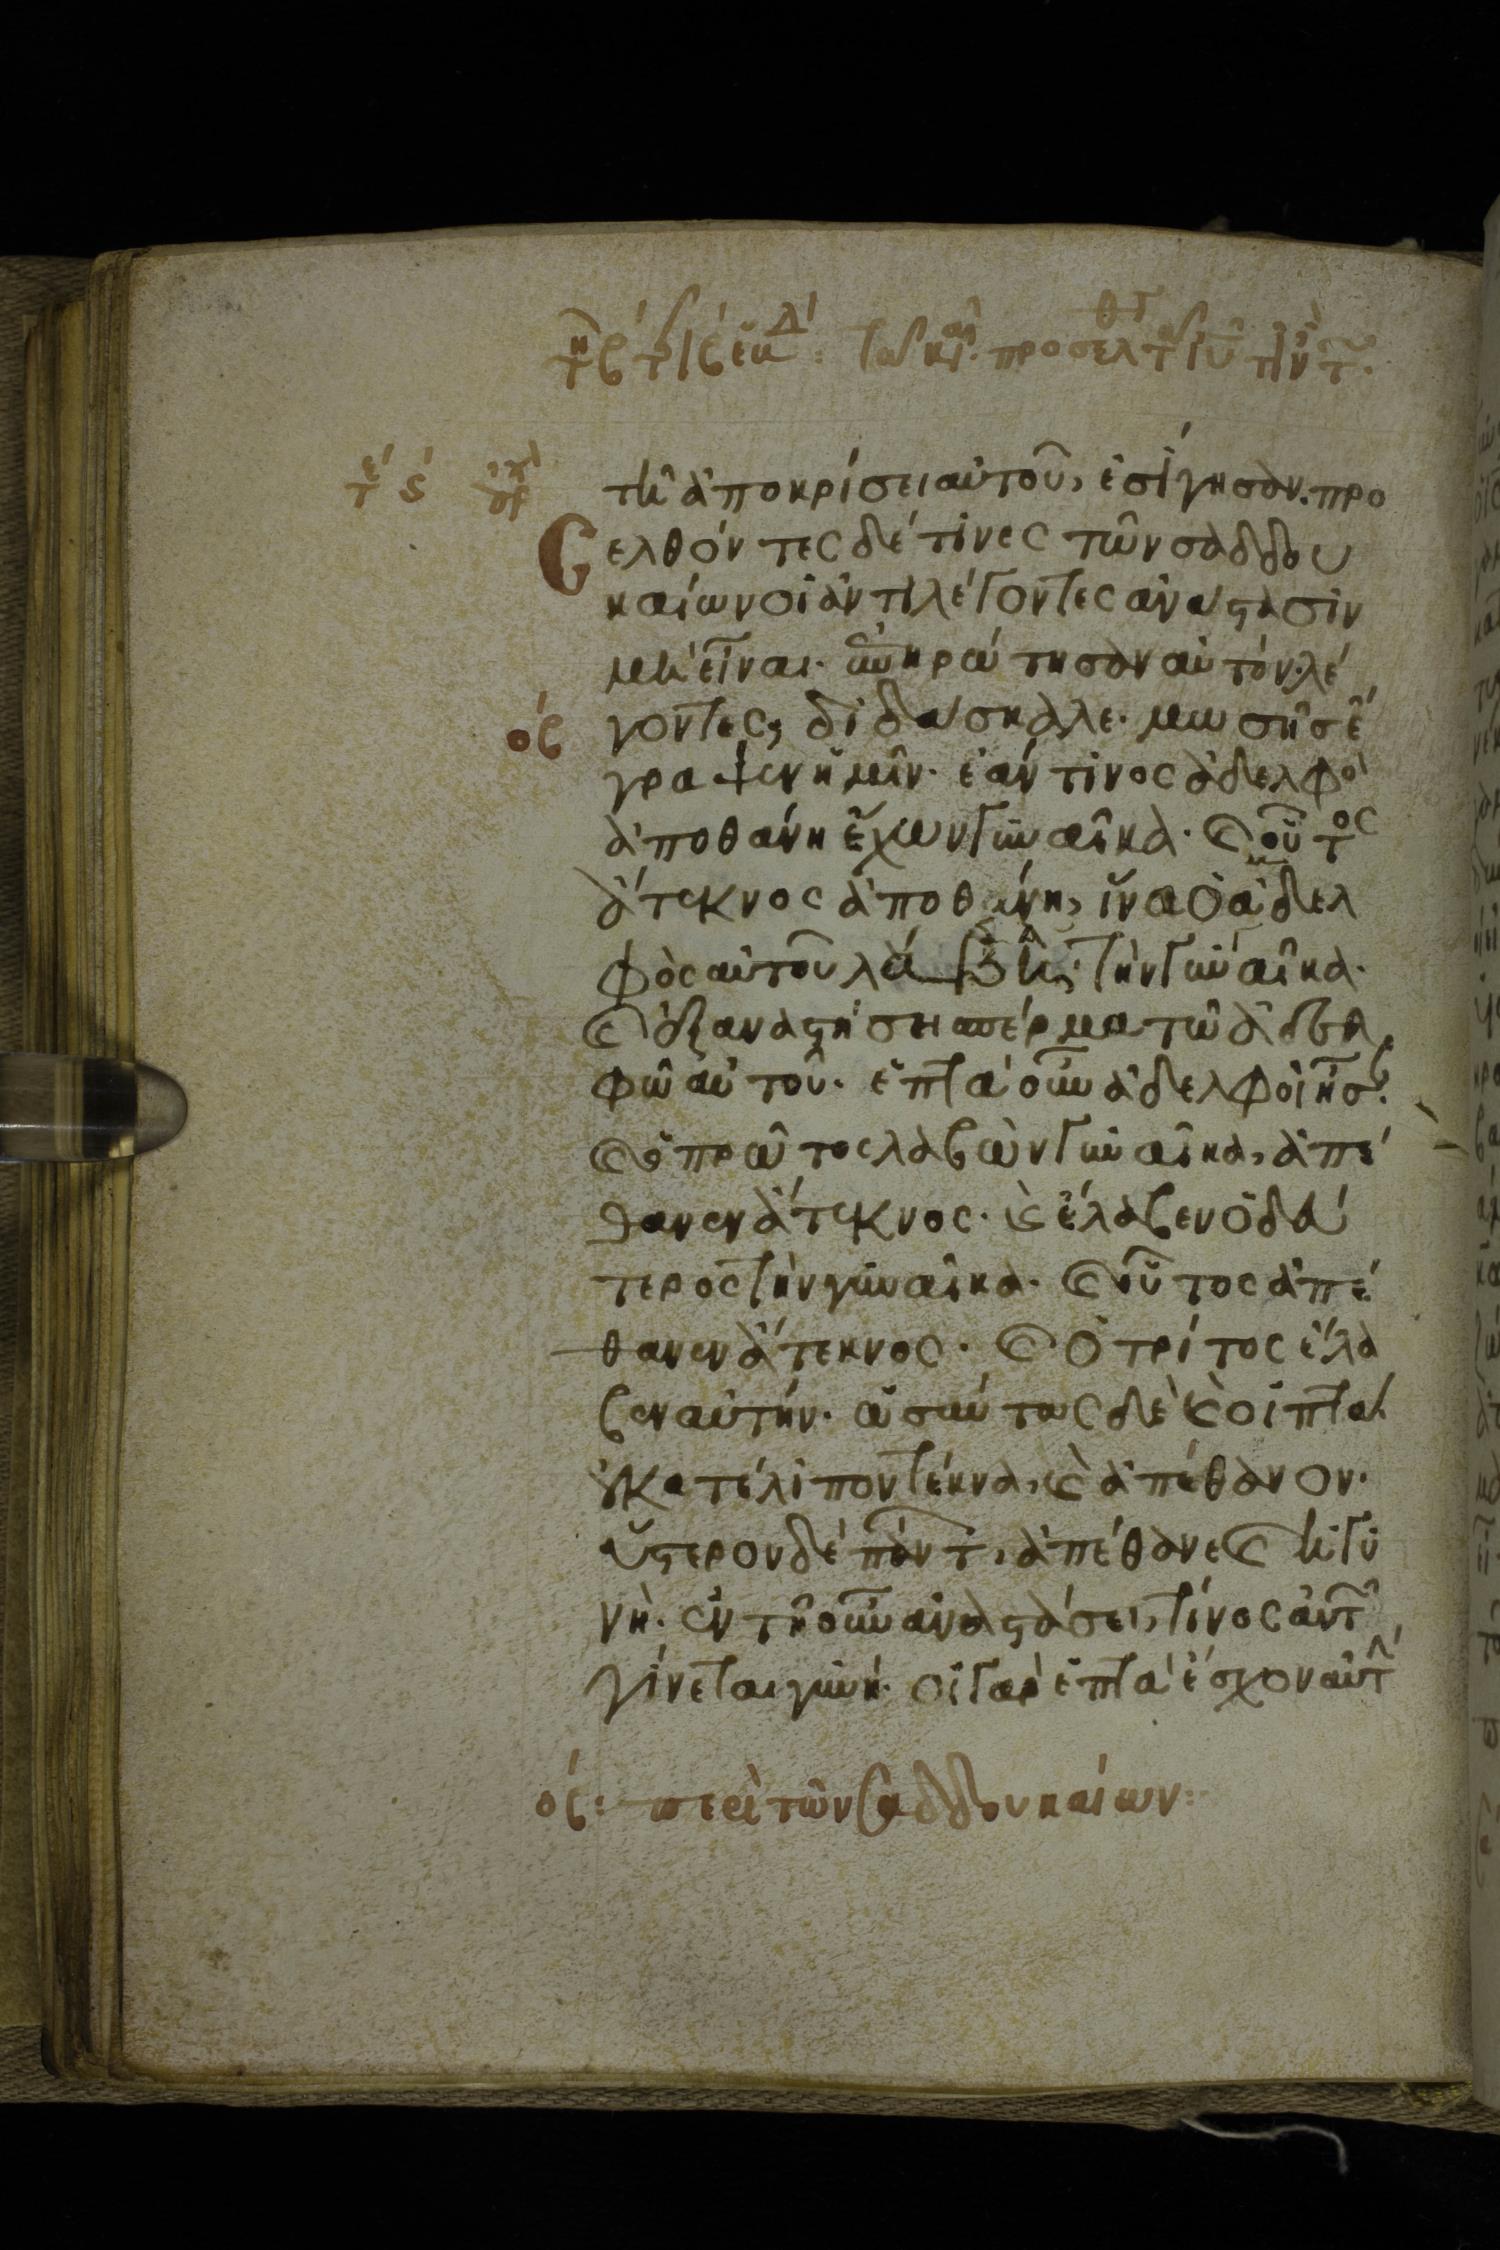 τῆ ἀποκρίσει αὐτοῦ, ἐσίγησαν. προ
ελθόντες δέ τινες τῶν σαδδου
καίων οἱ ἀντιλέγοντες ἀνάστασιν
μὴ εἶναι. ἐπηρώτησαν αὐτόν. λέ
ος γοντες, διδάσκαλε. μωσῆς ἔ
γραψεν ἡμῖν. ἐάν τινος ἀδελφὸ
ἀποθάνη ἔχων γυναῖκα. ϗ οὗτος
ἄτεκνος ἀποθάνη, ἵνα ὁ ἀδελ
φὸς αὐτοῦ λάβη τὴν γυναῖκα.
ϗ ἐξαναστήσει σπέρμα τῶ ἀδελ
φῶ αὐτοῦ. ἑπτὰ οὖν ἀδελφοὶ ἦσ.
ϗ ὁ πρῶτος λαβὼν γυναῖκα, ἀπέ
θανεν ἄτεκνος. ϗ ἔλαβεν ὁ δεύ
τερος τὴν γυναῖκα. ϗ οὗτος ἀπέ
θανεν ἄτεκνος. ϗ ὁ τρίτος ἔλα
βεν αὐτήν. ὡσαύτως δὲ ϗ οἱ ἑπτά.
οὐ κατέλιπον τέκνα, ϗ ἀπέθανον.
ὕστερον δὲ πάντ, ἀπέθανε ϗ ἡ γυ
νὴ. ἐν τῆ οὖν ἀναστάσει, τίνος αὐτ
γίνεται γυνή. οἱ γὰρ ἑπτὰ ἔσχον αὐτ
ος: περὶ τῶν σαδδουκαίων: